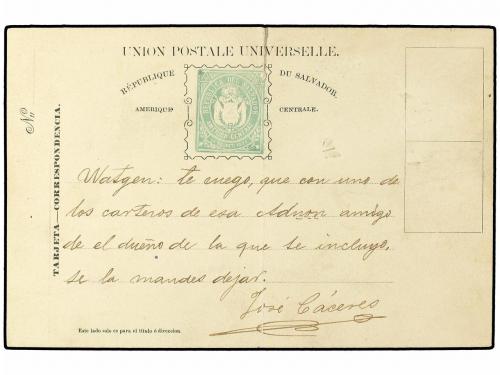 UNION POSTALE UNIVERSELLE.
RÉPUBLIQUE DU SALVADOR.
AMERIQUE CENTRALE.
Nº
TARJETA—CORRESPONDENCIA.
Watgen: te ruego, que con uno de
los carteros de esa Admon amigo
de el dueño de la que te incluyo,
se la mandes dejar.
José Cáceres
Este lado solo es para el título ó direccion.